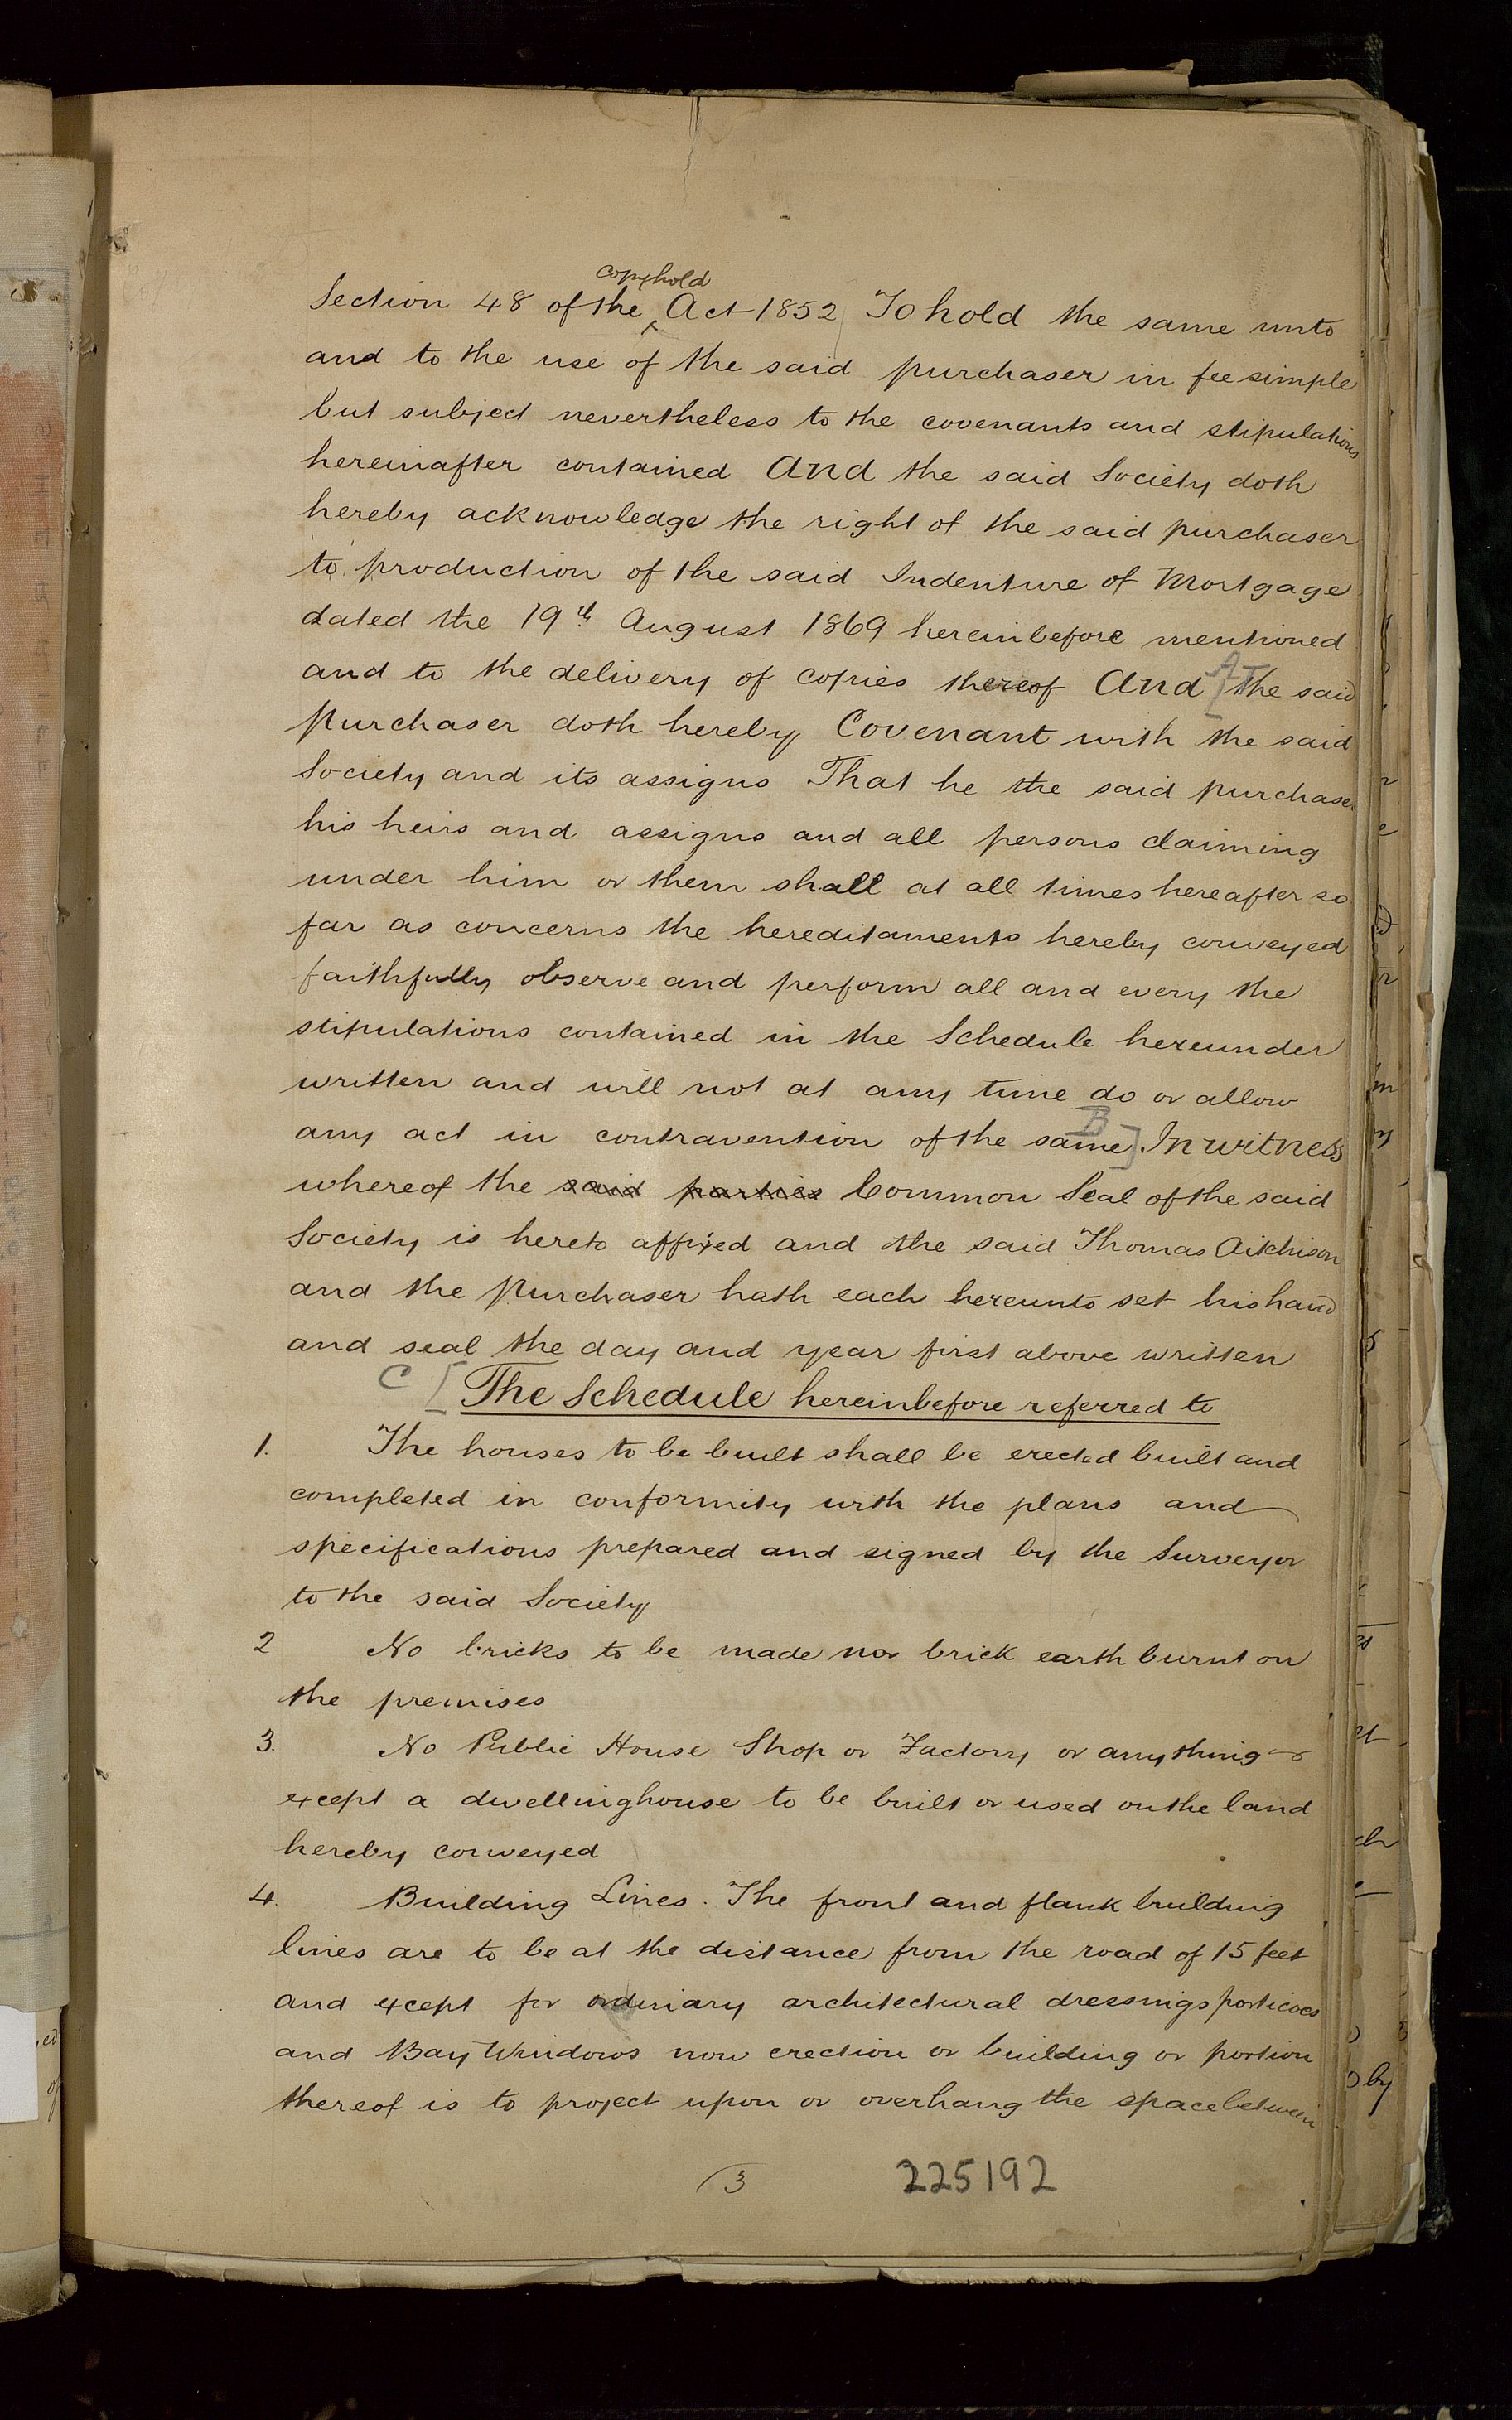 copyhold
Section 48 of the Act 1852 To hold the same unto
and to the use of the said purchaser in fee simple
but subject nevertheless to the covenants and stipulations
hereinafter contained And the said Society doth
hereby acknowledge the right of the said purchaser
to production of the said Indenture of Mortgage
dated the 19th August 1869 hereinbefore mentioned
and to the delivery of copies thereof And A [the said
purchaser doth hereby Covenant with the said
Society and its assigns That he the said purchaser
his heirs and assigns and all persons claiming
under him or them shall at all times hereafter so
far as concerns the hereditaments hereby conveyed
faithfully observe and perform all and every the
stipulations contained in the Schedule hereunder
written and will not at any time do or allow
any act in contravention of the same B] In witness
whereof the said parties Common Seal of the said
Society is hereto affixed and the said Thomas Aitchison
and the Purchaser hath each hereunto set his hand
and seal the day and year first above written
C [The Schedule hereinbefore referred to
1. The houses to be built shall be erected built and
completed in conformity with the plans and
specifications prepared and signed by the Surveyor
to the said Society
2 No bricks to be made nor brick earth burnt on
the premises
3. No Public House Shop or Factory or anything
except a dwellinghouse to be built or used on the land
hereby conveyed
4. Building Lines. The front and flank building
lines are to be at the distance from the road of 15 feet
and except for ordinary architectural dressings porticoes
and Bay Windows now erection or building or portion
thereof is to project upon or overhang the space between
3
225192
by